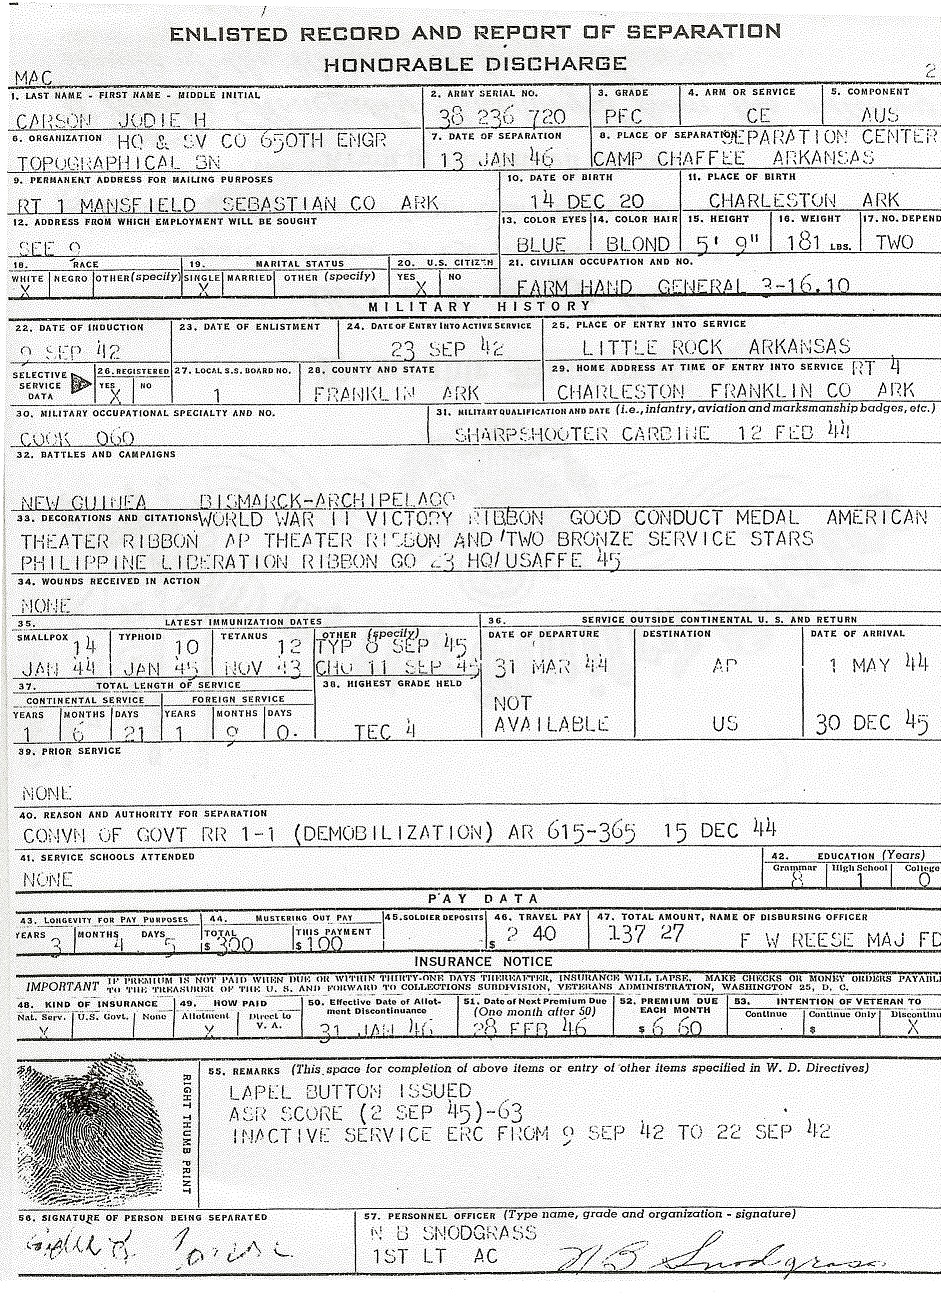 ENLISTED RECORD AND REPORT OF SEPARATION
HONORABLE DISCHARGE
MAC 2
1. LAST NAME - FIRST NAME - MIDDLE INITIAL
CARSON JODIE H
2. ARMY SERIAL NO.
38 236 720
3. GRADE
PFC
4. ARM OR SERVICE
CE
5. COMPONENT
AUS
6. ORGANIZATION HQ & SV CO 650TH ENGR
TOPOGRAPHICAL BN
7. DATE OF SEPARATION
13 JAN 46
8. PLACE OF SEPARATION SEPARATION CENTER
CAMP CHAFFEE ARKANSAS
9. PERMANENT ADDRESS FOR MAILING PURPOSES
RT 1 MANSFIELD SEBASTIAN CO ARK
10. DATE OF BIRTH
14 DEC 20
11. PLACE OF BIRTH
CHARLESTON ARK
12. ADDRESS FROM WHICH EMPLOYMENT WILL BE SOUGHT
SEE 9
13. COLOR EYES
BLUE
14. COLOR HAIR
BLOND
15. HEIGHT
5' 9"
16. WEIGHT
181 LBS.
17. NO. DEPEND
TWO
18. RACE
WHITE NEGRO OTHER (specify)
X
19. MARITAL STATUS
SINGLE MARRIED OTHER (specify)
X
20. U.S. CITIZEN
YES NO
X
21. CIVILIAN OCCUPATION AND NO.
FARM HAND GENERAL 3-16.10
MILITARY HISTORY
22. DATE OF INDUCTION
9 SEP 42
23. DATE OF ENLISTMENT
24. DATE OF ENTRY INTO ACTIVE SERVICE
23 SEP 42
25. PLACE OF ENTRY INTO SERVICE
LITTLE ROCK ARKANSAS
SELECTIVE
SERVICE
DATA
26. REGISTERED
YES NO
X
27. LOCAL S.S. BOARD NO.
1
28. COUNTY AND STATE
FRANKLIN ARK
29. HOME ADDRESS AT TIME OF ENTRY INTO SERVICE RT 4
CHARLESTON FRANKLIN CO ARK
30. MILITARY OCCUPATIONAL SPECIALTY AND NO.
COOK 060
31. MILITARY QUALIFICATION AND DATE (i.e., infantry, aviation and marksmanship badges, etc.)
SHARPSHOOTER CARBINE 12 FEB 44
32. BATTLES AND CAMPAIGNS
NEW GUINEA BISMARCK-ARCHIPELAGO
33. DECORATIONS AND CITATIONS WORLD WAR II VICTORY RIBBON GOOD CONDUCT MEDAL AMERICAN
THEATER RIBBON AP THEATER RIBBON AND TWO BRONZE SERVICE STARS
PHILIPPINE LIBERATION RIBBON GO 23 HQ/USAFFE 45
34. WOUNDS RECEIVED IN ACTION
NONE
35. LATEST IMMUNIZATION DATES
SMALLPOX 14
JAN 44
TYPHOID 10
JAN 45
TETANUS 12
NOV 43
OTHER (specify)
TYP 8 SEP 45
CHO 11 SEP 45
36. SERVICE OUTSIDE CONTINENTAL U. S. AND RETURN
DATE OF DEPARTURE DESTINATION DATE OF ARRIVAL
31 MAR 44 AP 1 MAY 44
NOT
AVAILABLE US 30 DEC 45
37. TOTAL LENGTH OF SERVICE
CONTINENTAL SERVICE FOREIGN SERVICE
YEARS MONTHS DAYS YEARS MONTHS DAYS
1 6 21 1 9 0
38. HIGHEST GRADE HELD
TEC 4
39. PRIOR SERVICE
NONE
40. REASON AND AUTHORITY FOR SEPARATION
CONVN OF GOVT RR 1-1 (DEMOBILIZATION) AR 615-365 15 DEC 44
41. SERVICE SCHOOLS ATTENDED
NONE
42. EDUCATION (Years)
Grammar High School College
8 1 0
PAY DATA
43. LONGEVITY FOR PAY PURPOSES
YEARS 3 MONTHS 4 DAYS 5
44. MUSTERING OUT PAY
TOTAL THIS PAYMENT
$ 300 $ 100
45. SOLDIER DEPOSITS
46. TRAVEL PAY
$ 2 40
47. TOTAL AMOUNT, NAME OF DISBURSING OFFICER
137 27 F W REESE MAJ FD
INSURANCE NOTICE
IMPORTANT IF PREMIUM IS NOT PAID WHEN DUE OR WITHIN THIRTY-ONE DAYS THEREAFTER, INSURANCE WILL LAPSE. MAKE CHECKS OR MONEY ORDERS PAYABLE
TO THE TREASURER OF THE U. S. AND FORWARD TO COLLECTIONS SUBDIVISION, VETERANS ADMINISTRATION, WASHINGTON 25, D. C.
48. KIND OF INSURANCE
Nat. Serv. U.S. Govt. None
X
49. HOW PAID
Allotment Direct to V. A.
X
50. Effective Date of Allotment Discontinuance
31 JAN 46
51. Date of Next Premium Due
(One month after 50)
28 FEB 46
52. PREMIUM DUE
EACH MONTH
$ 6 60
53. INTENTION OF VETERAN TO
Continue Continue Only Discontinu
$ X
RIGHT THUMB PRINT
55. REMARKS (This space for completion of above items or entry of other items specified in W. D. Directives)
LAPEL BUTTON ISSUED
ASR SCORE (2 SEP 45)-63
INACTIVE SERVICE ERC FROM 9 SEP 42 TO 22 SEP 42
56. SIGNATURE OF PERSON BEING SEPARATED
57. PERSONNEL OFFICER (Type name, grade and organization - signature)
N B SNODGRASS
1ST LT AC
N B Snodgrass